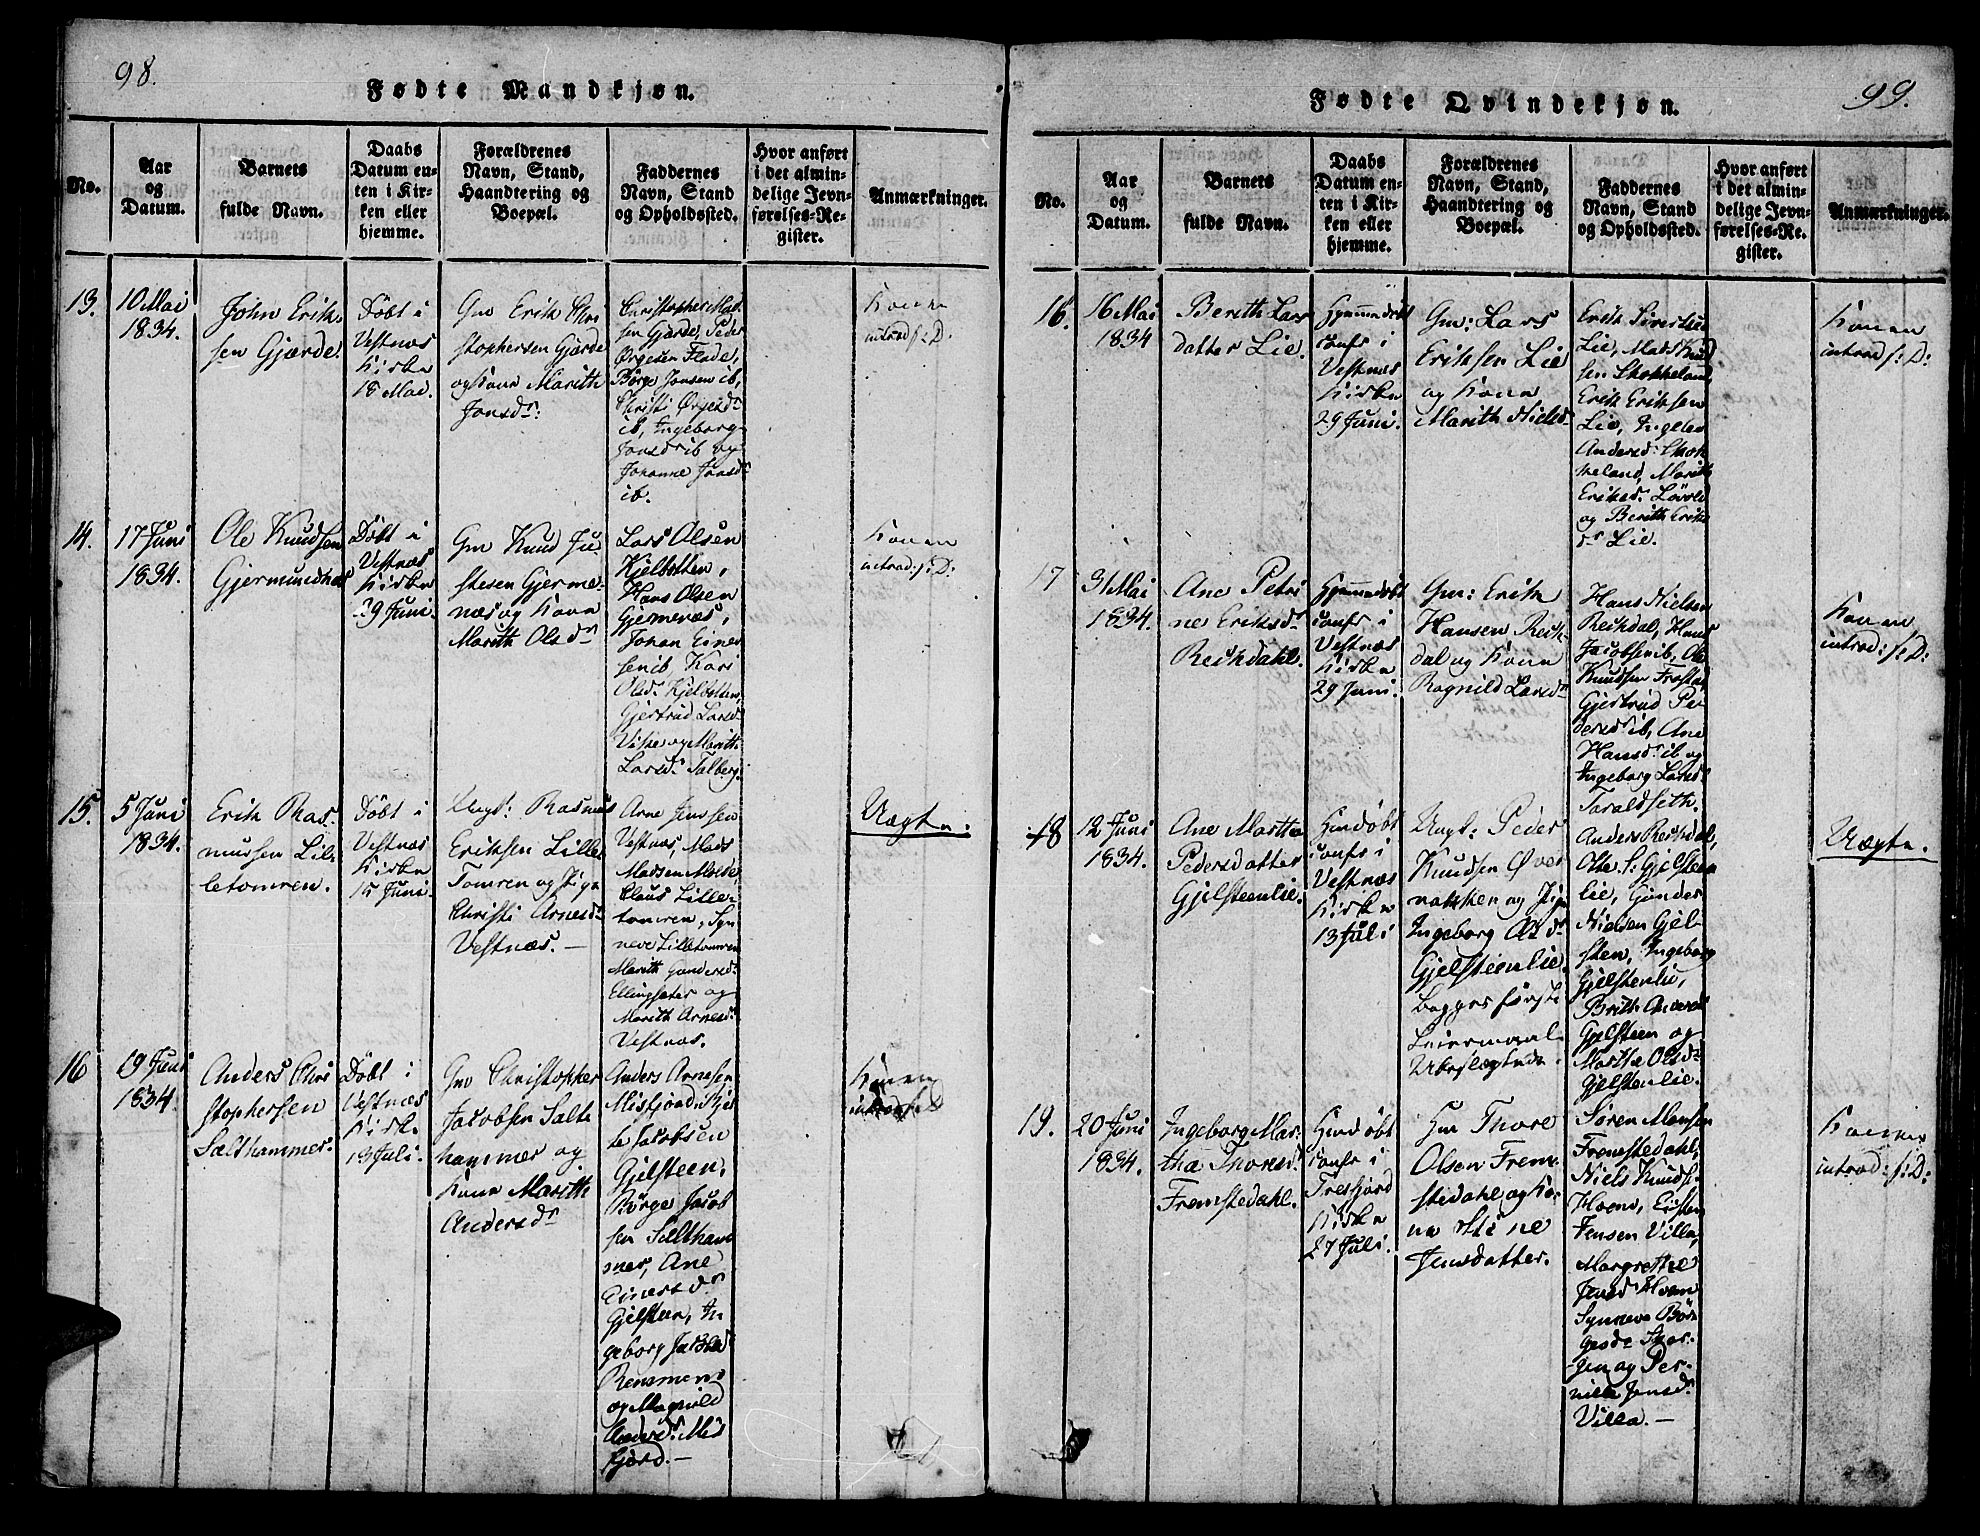 98.
Fødte Mandkjøn.
No.
Aar
og
Datum.
Barnets
fulde Navn.
Daabs
Datum en-
ten i Kir-
ken eller
hjemme.
Forældrenes
Navn, Stand,
Haandtering og
Boepæl.
Faddernes
Navn, Stand
og Opholdssted.
Hvor anført
i det almin-
delige Jevn-
førelses-Re-
gister.
Anmærkninger.
13.
10 Mai
1834.
John Erik-
sen Gjærde.
Döbt i
Vestnæs
Kirke
18 Mai.
Gm Erik Chri
stophersen Gjærde
og Kone Marith
Jonsdr:
Christopher Mad-
sen Gjærde, Peder
Ørgesen Flade,
Börge Jonsen ib,
Christi Ørgesdr
ib, Ingeborg
Jonsdr ib og
Johanne Jonsdr
ib.
Konen
introd: s: D:
14.
17 Juni
1834.
Ole Knudsen
Gjermundnæs
Döbt i
Vestnæs
Kirke
29 Juni.
Gm Knud Ju
stesen Gjerme-
næs og Kone
Marith Olsdr
Lars Olsen
Kjelbotten,
Hans Olsen
Gjermenæs,
Johan Einer
sen ib, Kari
Olsdr Kjelbotten,
Gjertrud Larsdr
Viste og Marith
Larsdr Talberg.
Konen
introd: s: D:
15.
5 Juni
1834.
Erik Ras-
mussen Lil-
letomren.
Döbt i
Vestnæs
Kirke
15 Juni.
Ungk: Rasmus
Eriksen Lille-
Tomren og Pige
Christi Arnesdr
Vestnæs. —
Arne Jenssen
Vestnæs, Mads
Madsen Molde,
Claus Lille-
tomren, Syn
neve Lilletomren
Marith Gundersdr
Ellingsæter og
Marith Arnesdr
Vestnæs.
Uægte.
16
19 Juni
1834.
Anders Chri
stophersen
Salthammer.
Döbt i
Vestnæs
Kirke
13 Juli.
Gm Christopher
Jacobsen Salte
hammer og
Kone Marith
Andersdr
Anders Arnesen
Misfjord,
Jacobsen
Gjelsteen,
Börge Jacob
sen Saltham
mer, Ane
Einersdr
Gjelsteen, In
geborg
og Magnild
Andersdr Mis
fjord. —
Konen
introd
99.
Fødte Qvindekjøn.
No.
Aar
og
Datum.
Barnets
fulde Navn.
Daabs
Datum en-
ten i Kir-
ken eller
hjemme.
Forældrenes
Navn, Stand,
Haandtering og
Boepæl.
Faddernes
Navn, Stand
og Opholdssted.
Hvor anført
i det almin-
delige Jevn-
førelses-Re-
gister.
Anmærkninger.
16.
16 Mai
1834
Berith Lars
datter Lie.
Hjemmedöbt
confr i
Vestnæs
Kirke
29 Juni.
Gm: Lars
Eriksen Lie
og Kone
Marith Nielsd
Erik Sivertsen
Lie, Mads Knud
sen Skokkeland,
Erik Eriksen
Lie, Ingeler
Andersd: Skok
keland, Marith
Eriksd: Lövold
og Berith Eriks
dr Lie.
Konen
introd: s: D:
17
31 Mai
1834.
Ane Petri
ne Eriksdr
Reistdahl.
Hjemmedöbt
confr i
Vestnæs
Kirke
29 Juni.
Gm: Erik
Hansen Reist-
dal og Kone
Ragnild Larsdr
Hans Nielsen
Reistdal, Hans
Jacobsen ib, Ole
Knudsen Frostad,
Gjertrud Pe-
dersdr ib, Ane
Hansdr ib og
Ingeborg Larsdr
Taraldseth.
Konen
introd: s: D:
18
12 Juni
1834.
Ane Martha
Pedersdatter
Gjelsteenlie.
Hmdöbt
confr i
Vestnæs
Kirke
13 Juli
Ungk: Peder
Knudsen Over
nakken og Pige
Ingeborg Olsdr
Gjelsteenlie.
Begges förste
Leiermaal
Ubeslægtede.
Anders Reistdal,
Ole S: Gjelsteen
lie, Gunder
Nielsen Gjel-
sten, Ingeborg
Gjelstenlie,
Brith Andersdr
Gjelsteen og
Martha Olsdr
Gjelstenlie.
Uægte.
19.
20 Juni
1834.
Ingeborg Mar-
tha Thoresdr
Fremstedahl.
Hmdöbt
confr i
Tresfjord
Kirke
27 Juli.
Gm Thore
Olsen Frem-
stedahl og Ko-
ne Stine
Jensdatter.
Sören Monsen
Fremstedahl,
Niels Knuds:
Hoem, Eisten
Jensen Villa,
Margrethe
Jensd Hoem
Synneve Bör
gesdr
og Per-
nille Jensdr
Villa. —
Konen
introd: s: D: